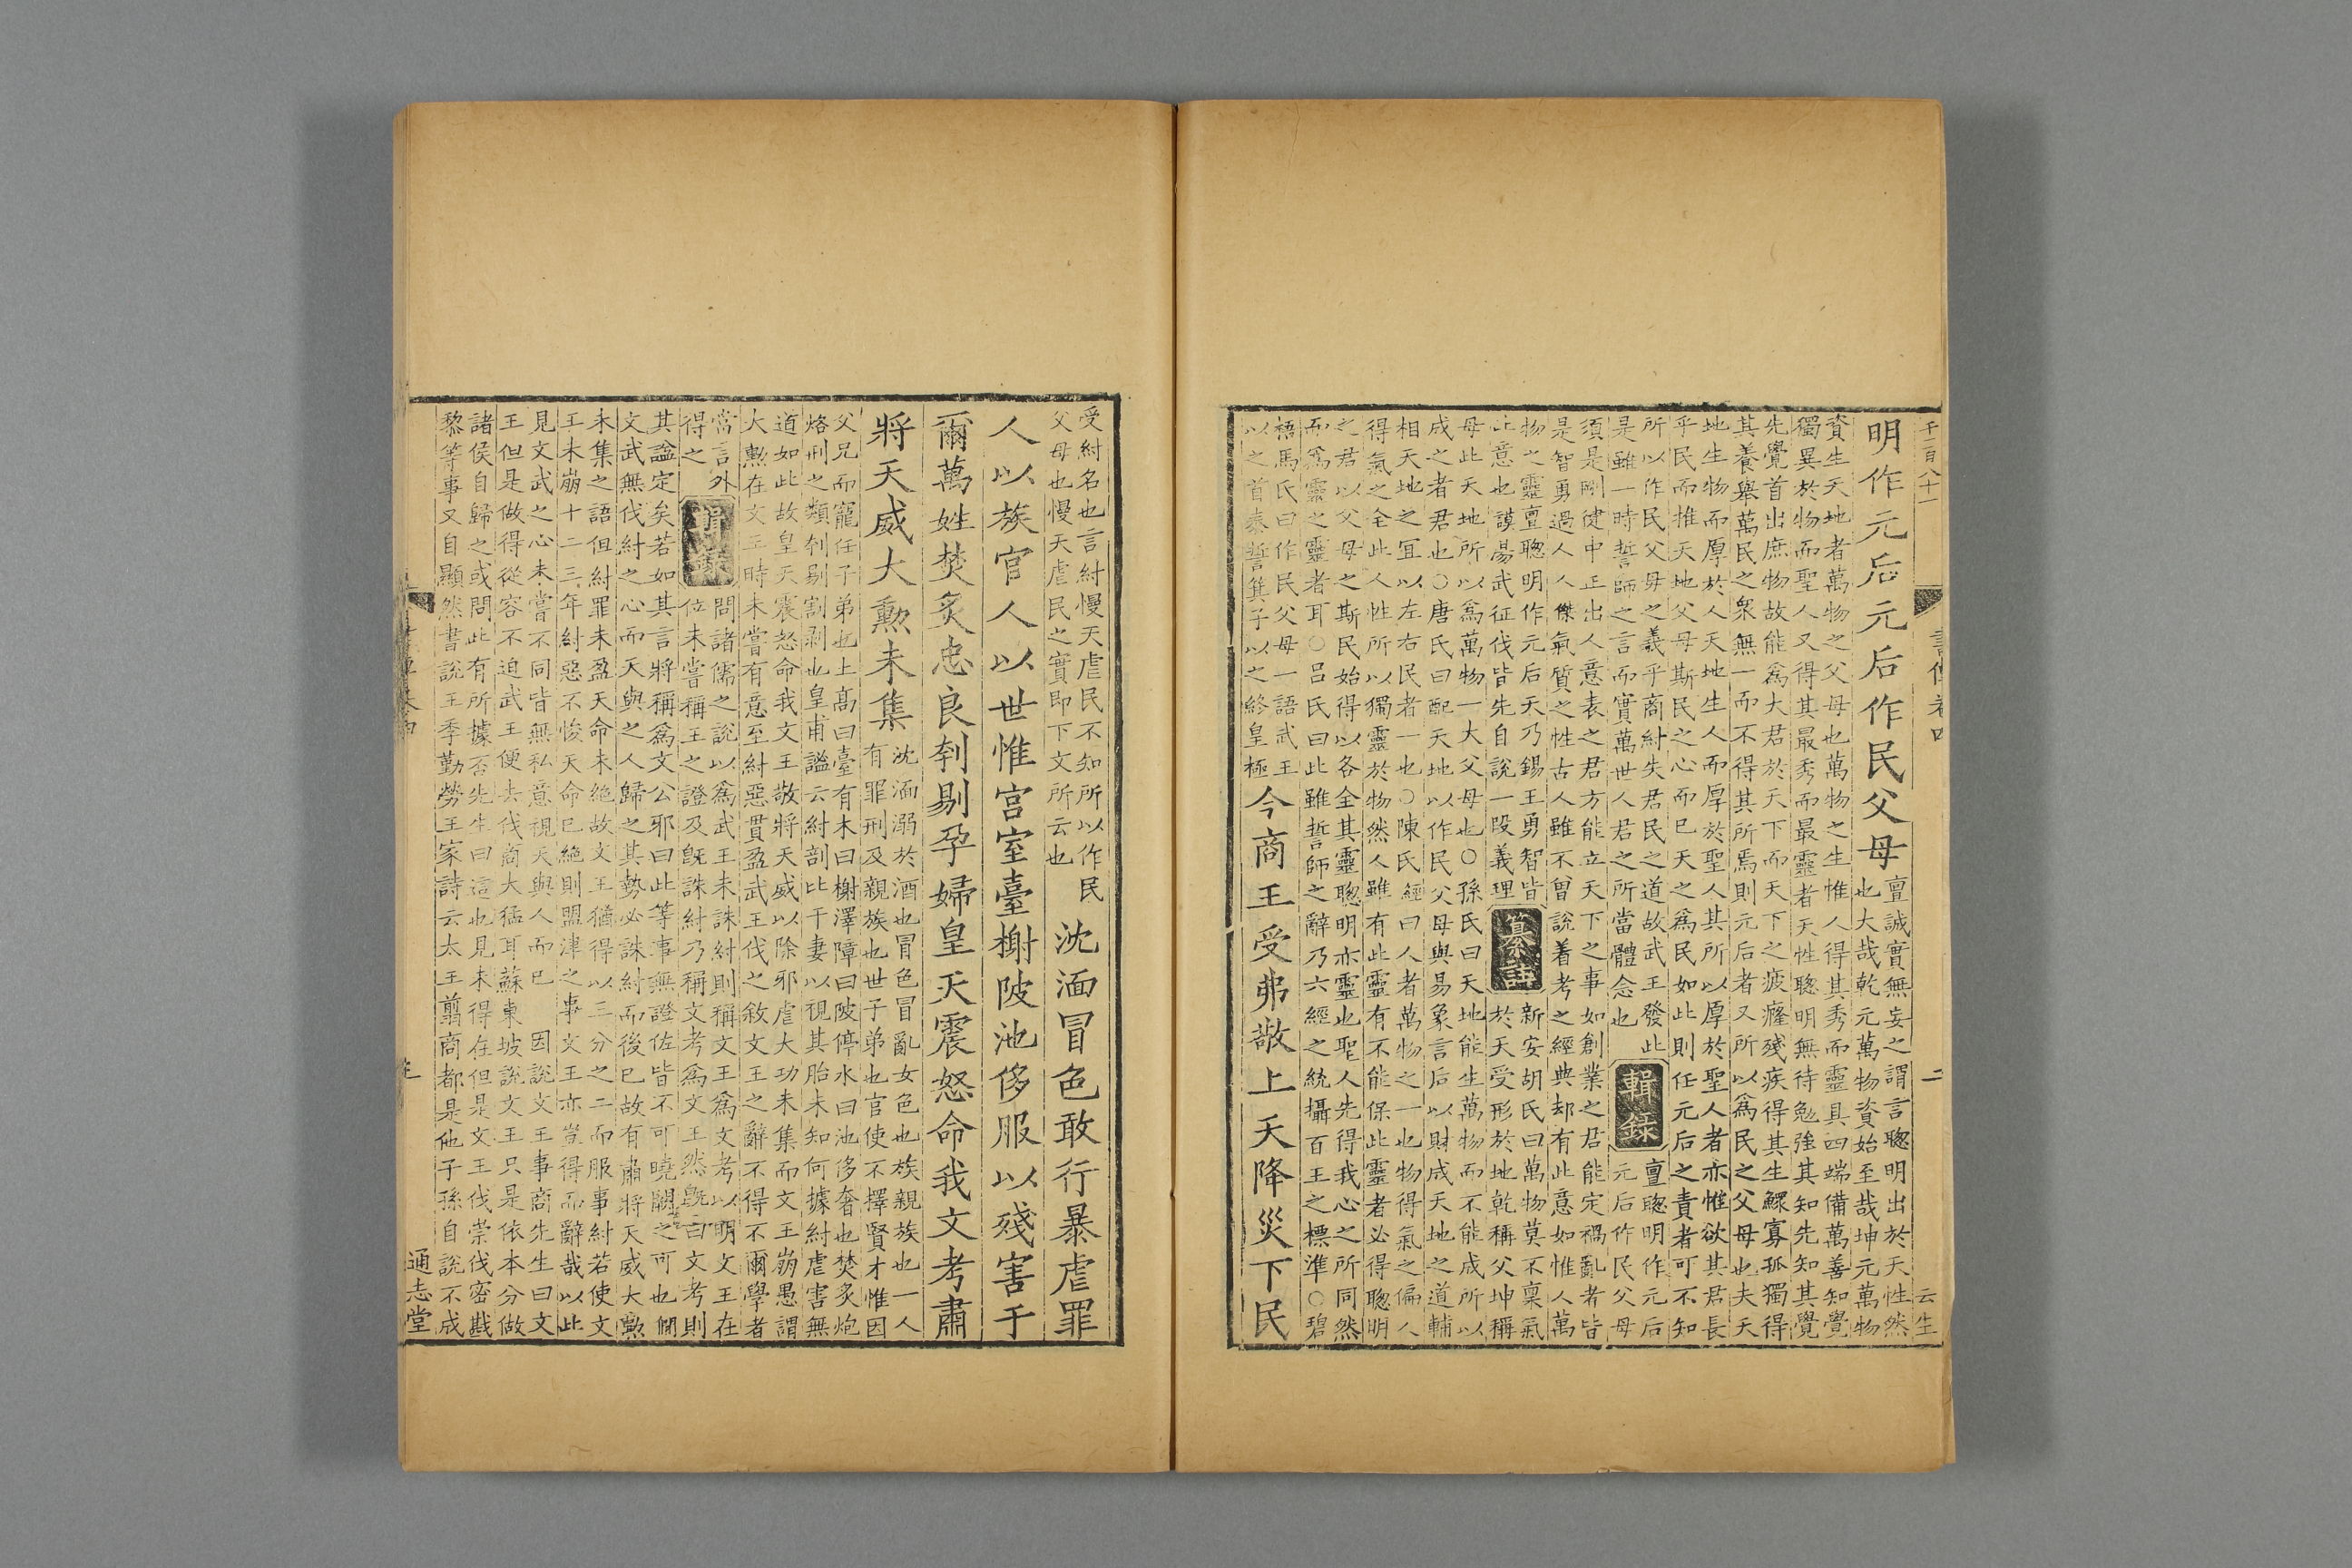 千二百八十一
二
云生
明作元后元后作民父母
亶誠實無妄之謂言聰明出於天性然
也大哉乾元萬物資始至哉坤元萬物
資生天地者萬物之父母也萬物之生惟人得其秀而靈具四端備萬善知覺
獨異於物而聖人又得其最秀而最靈者天性聰明無待勉強其知先知其覺
先覺首出庶物故能為大君於天下而天下之疲癃殘疾得其生鰥寡孤獨得
其養舉萬民之衆無一而不得其所焉則元后者又所以為民之父母也夫天
地生物而厚於人天地生人而厚於聖人其所以厚於聖人者亦惟欲其君長
乎民而推天地父母斯民之心而已天之為民如此則任元后之責者可不知
所以作民父母之義乎商紂失君民之道故武王發此
是雖一時誓師之言而實萬世人君之所當體念也
輯錄
亶聰明作元后
元后作民父母
須是剛健中正出人意表之君方能立天下之事如創業之君能定禍亂者皆
是智勇過人人傑氣質之性古人雖不曾說着考之經典却有此意如惟人萬
物之靈亶聰明作元后天乃錫王勇智皆
止意也謨湯武征伐皆先自說一段義理
纂註
新安胡氏曰萬物莫不稟氣
於天受形於地乾稱父坤稱
母此天地所以為萬物一大父母也○孫氏曰天地能生萬物而不能成所以
成之者君也○唐氏曰配天地以作民父母與易象言后以財成天地之道輔
相天地之宜以左右民者一也○陳氏經曰人者萬物之一也物得氣之偏人
得氣之全此人性所以獨靈於物然人雖有此靈有不能保此靈者必得聰明
之君以父母之斯民始得以各全其靈聰明亦靈也聖人先得我心之所同然
而為靈之靈者耳○呂氏曰此雖誓師之辭乃六經之統攝百王之標準○碧
梧馬氏曰作民父母一語武王
以之首泰誓箕子以之終皇極
今商王受弗敬上天降災下民
受紂名也言紂慢天虐民不知所以作民
父母也慢天虐民之實即下文所云也
沈湎冒色敢行暴虐罪
人以族官人以世惟宮室臺榭陂池侈服以殘害于
爾萬姓焚炙忠良刳剔孕婦皇天震怒命我文考肅
將天威大勲未集
沈湎溺於酒也冒色冒亂女色也族親族也一人
有罪刑及親族也世子弟也官使不擇賢才惟因
父兄而寵任子弟也土高曰臺有木曰榭澤障曰陂停水曰池侈奢也焚炙炮
烙刑之類刳剔割剥也皇甫謐云紂剖比干妻以視其胎未知何據紂虐害無
道如此故皇天震怒命我文王敬將天威以除邪虐大功未集而文王崩愚謂
大勲在文王時未嘗有意至紂惡貫盈武王伐之敘文王之辭不得不爾學者
當言外
得之
輯錄
問諸儒之說以為武王未誅紂則稱文王為文考以明文王在
位未嘗稱王之證及既誅紂乃稱文考為文王然既曰文考則
其謚定矣若如其言將稱為文公邪曰此等事無證佐皆不可曉闕之可也 僩
文武無伐紂之心而天與之人歸之其勢必誅紂而後已故有肅將天威大勲
未集之語但紂罪未盈天命未絶故文王猶得以三分之二而服事紂若使文
王未崩十二三年紂惡不悛天命已絶則盟津之事文王亦豈得而辭哉以此
見文武之心未嘗不同皆無私意視天與人而已 因說文王事商先生曰文
王但是做得從容不迫武王便去伐商大猛耳蘇東坡說文王只是依本分做
諸侯自歸之或問此有所據否先生曰這也見未得在但是文王伐崇伐密戡
黎等事又自顯然書說王季勤勞王家詩云太王翦商都是他子孫自說不成
通志堂